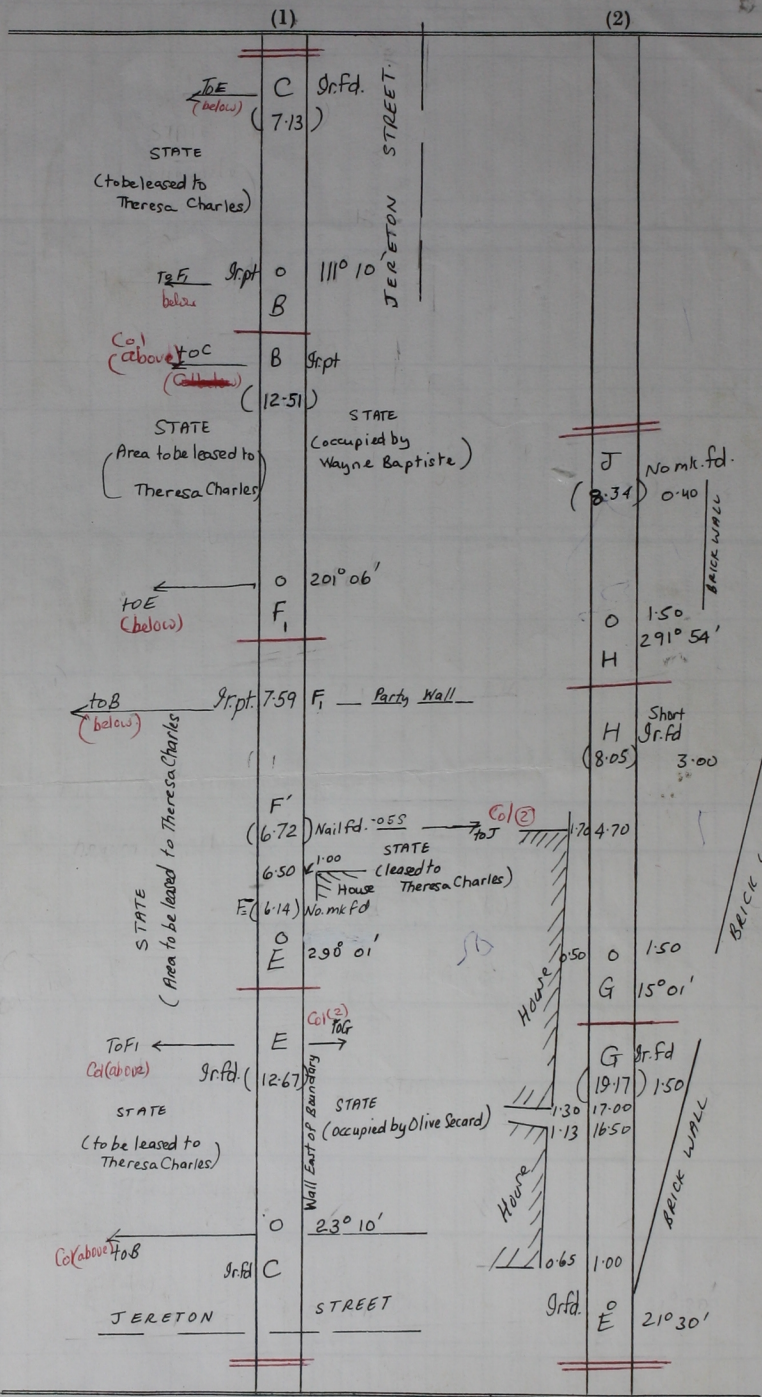 (1)
(2)
ToE
(below)
C
Ir.fd.
(7.13)
JERETON STREET.
STATE
(to be leased to
Theresa Charles)
ToF₁
below
Ir.pt
O
111° 10'
B
Col
(above)
toC
B
Ir.pt
(12.51)
STATE
(Area to be leased to
Theresa Charles)
STATE
(occupied by
Wayne Baptiste)
O
201° 06'
toE
(below)
F₁
toB
(below)
Ir.pt.
7.59
F₁
Party Wall
STATE
(Area to be leased to Theresa Charles
F'
(6.72)
Nail fd.
.055
toJ
Col(2)
6.50
1.00
House
STATE
(leased to
Theresa Charles)
F=
(6.14)
No.mk fd
O
E
290° 01'
Col(2)
toG
ToF1
Col(above)
E
Ir.fd.
(12.67)
STATE
(to be leased to
Theresa Charles)
Wall East of Boundary
STATE
(occupied by Olive Secard)
O
23° 10'
Col(above)
toB
Ir.fd
C
JERETON STREET
J
No mk.fd.
(8.34)
0.40
BRICK WALL
O
1.50
291° 54'
H
H
Short
Ir.fd
(8.05)
3.00
1.70
4.70
BRICK
House
0.50
O
1.50
G
15° 01'
G
Ir.fd
(19.17)
1.50
1.30
17.00
1.13
16.50
BRICK WALL
House
0.65
1.00
Ir.fd.
O
E
21° 30'